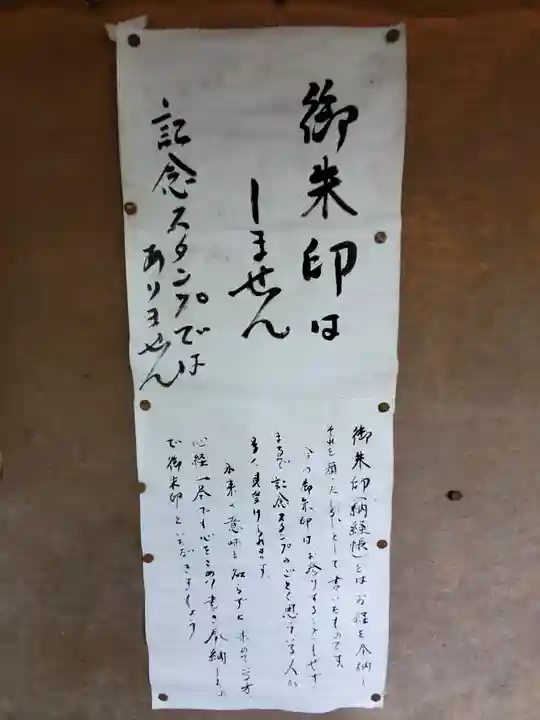 御朱印は
しません
記念スタンプでは
ありません
御朱印(納経帳)とはお経を奉納し
それを願った しるしとして書いたものです。
今の御朱印はお参りすることもせず
まるで記念スタンプのごとく思う人が
多く見受けられます。
本来の意味を知らずに求めて
心経一巻でも心をこめて書き奉納した上
で御朱印をいただきましょう